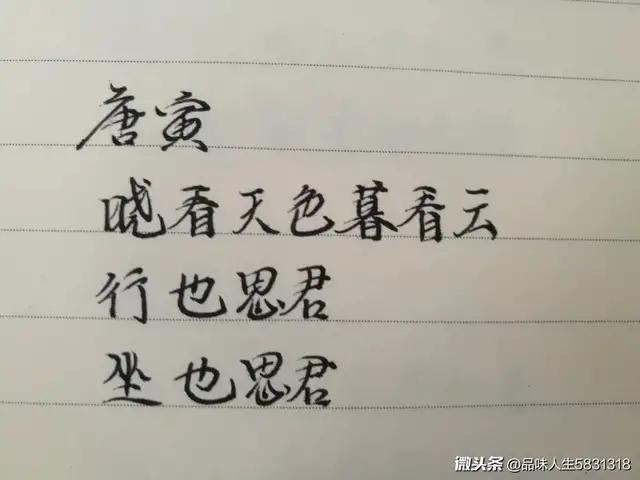 唐寅
晓看天色暮看云
行也思君
坐也思君
微头条 @品味人生5831318